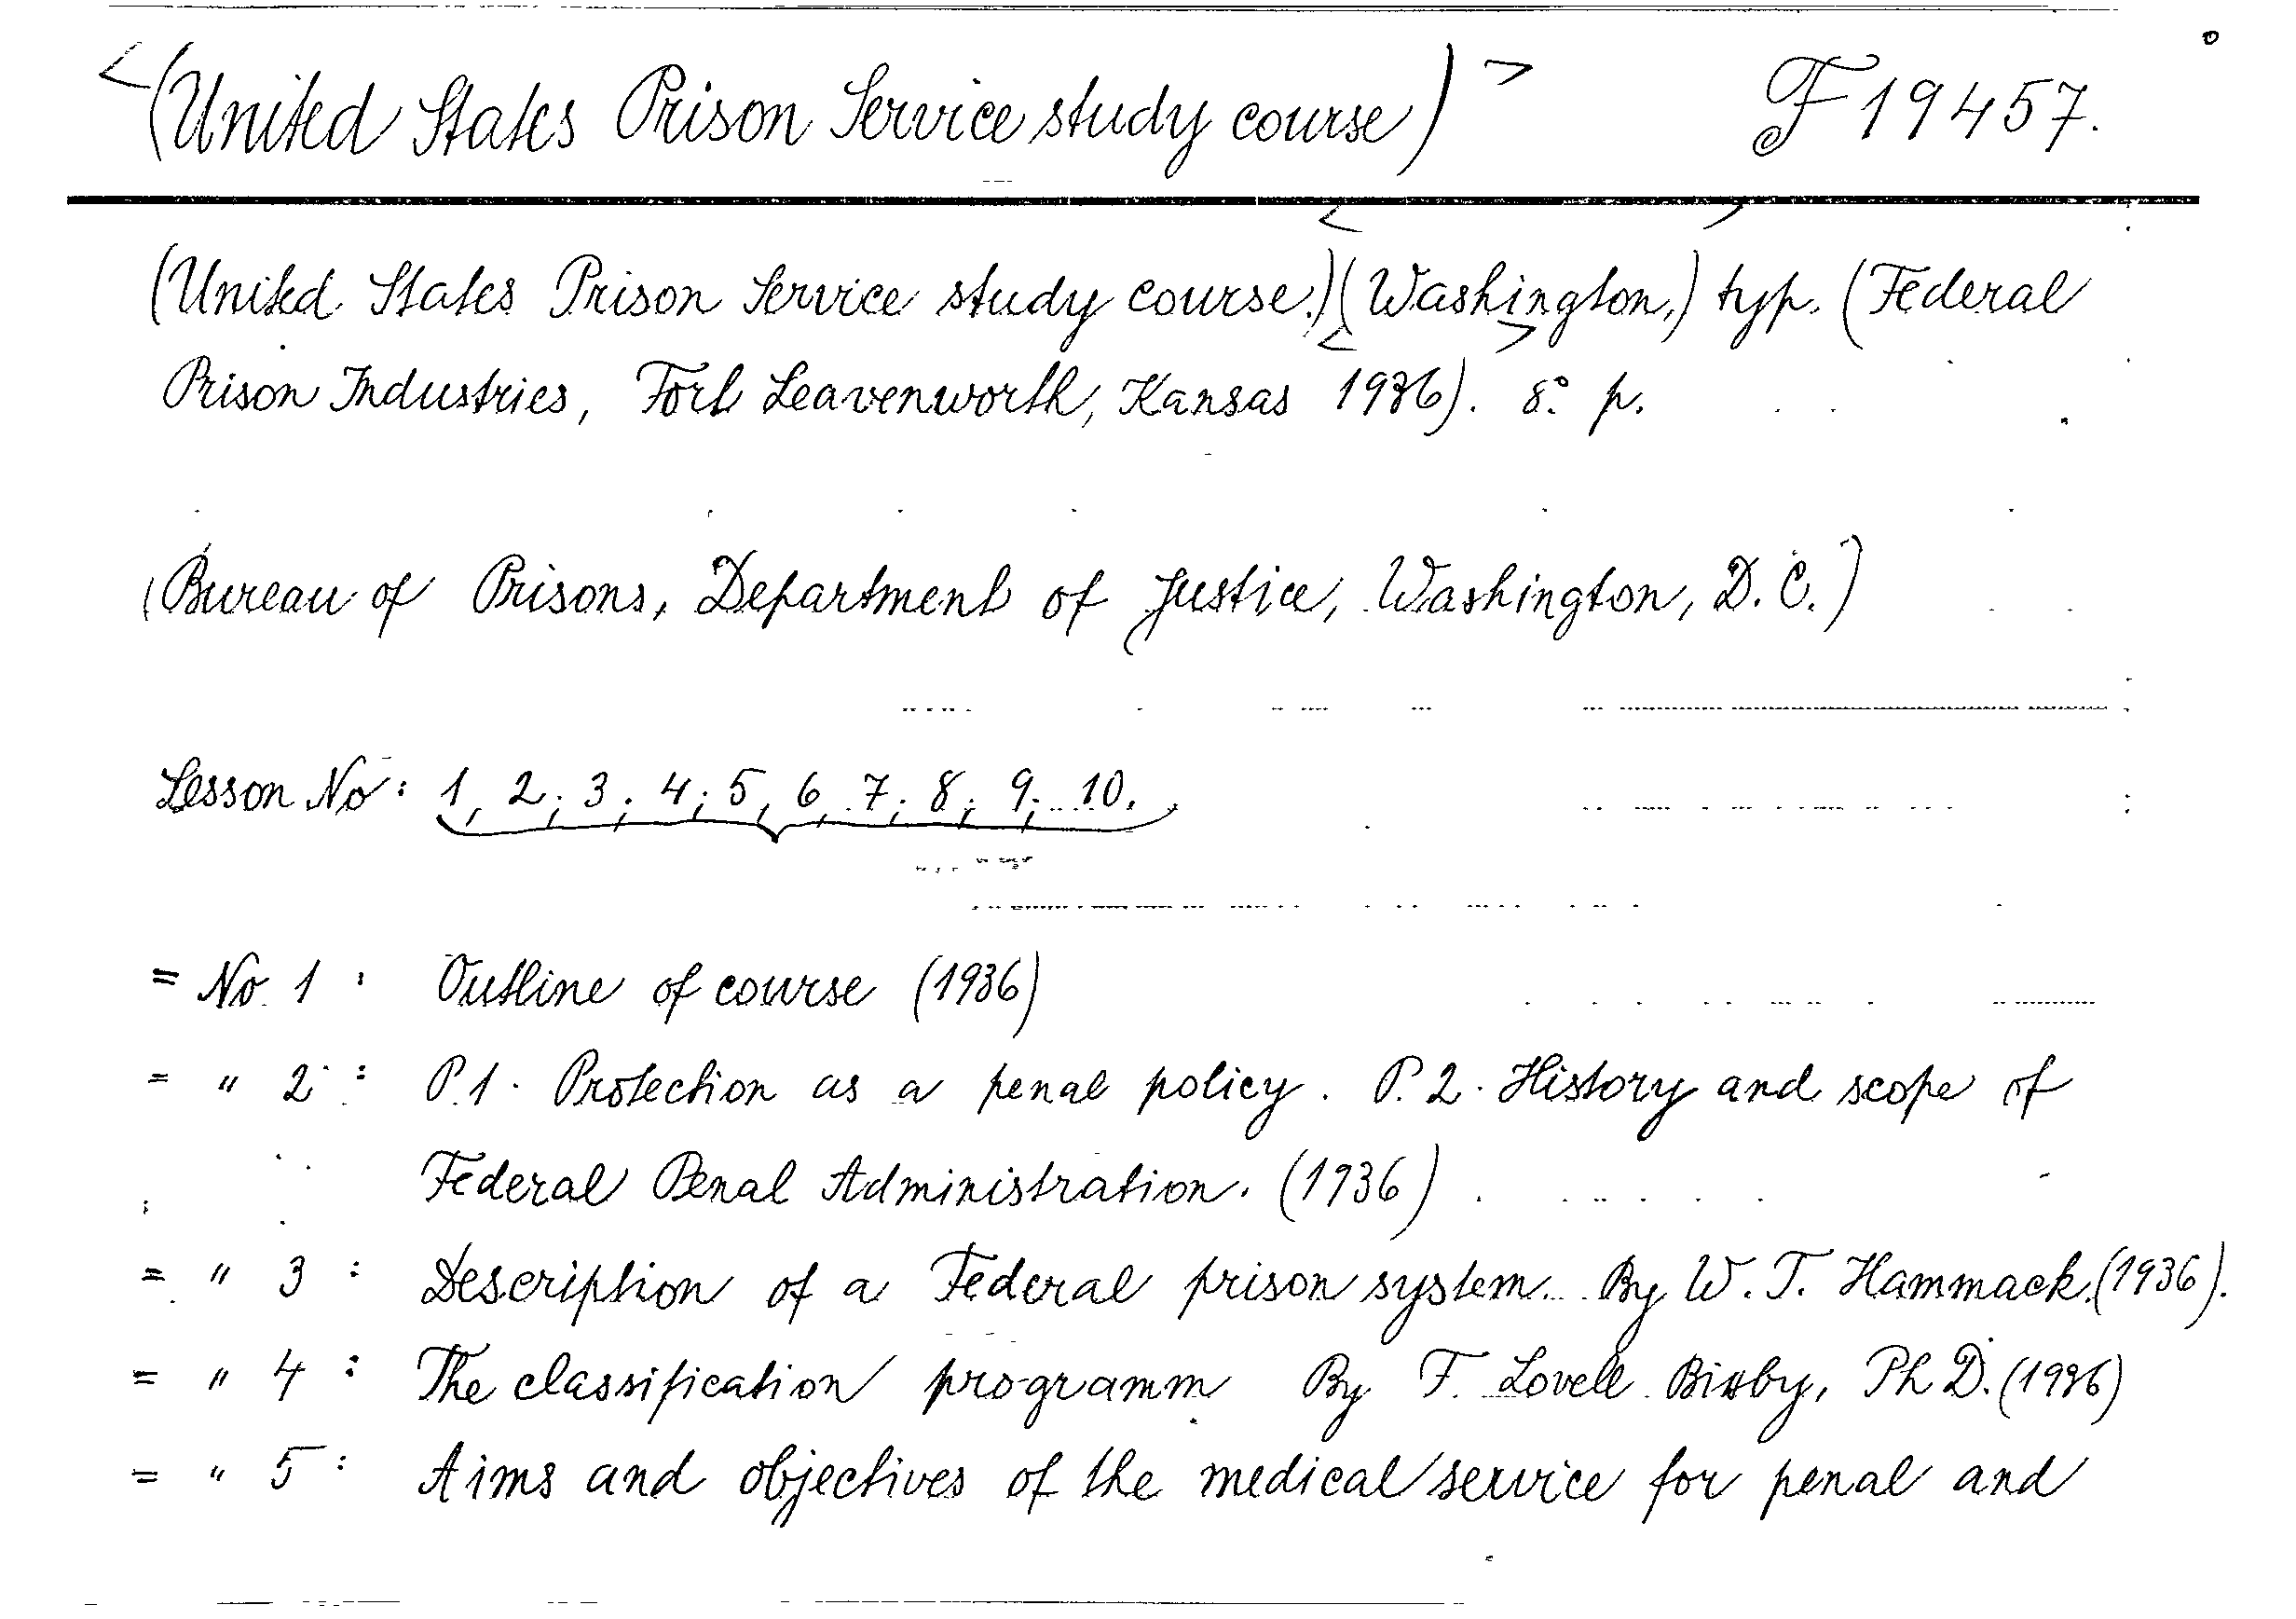 <(United States Prison Service study course)> F 19457.
(United States Prison Service study course.) <(Washington,)> typ. (Federal
Prison Industries, <Fort Leavenworth, Kansas> 1936). 8° p.
(Bureau of Prisons, Department of Justice, Washington, D.C.)
Lesson No: 1, 2, 3, 4, 5, 6, 7, 8, 9, 10.
= No. 1 : Outline of course (1936)
= " 2 : P.1. Protection as a penal policy. P. 2. History and scope of
Federal Penal Administration. (1936)
= " 3 : Description of a Federal prison system. By W. T. Hammack. (1936).
= " 4 : The classification programm By F. Lovell Bixby, Ph D. (1936)
= " 5 : Aims and objectives of the medical service for penal and